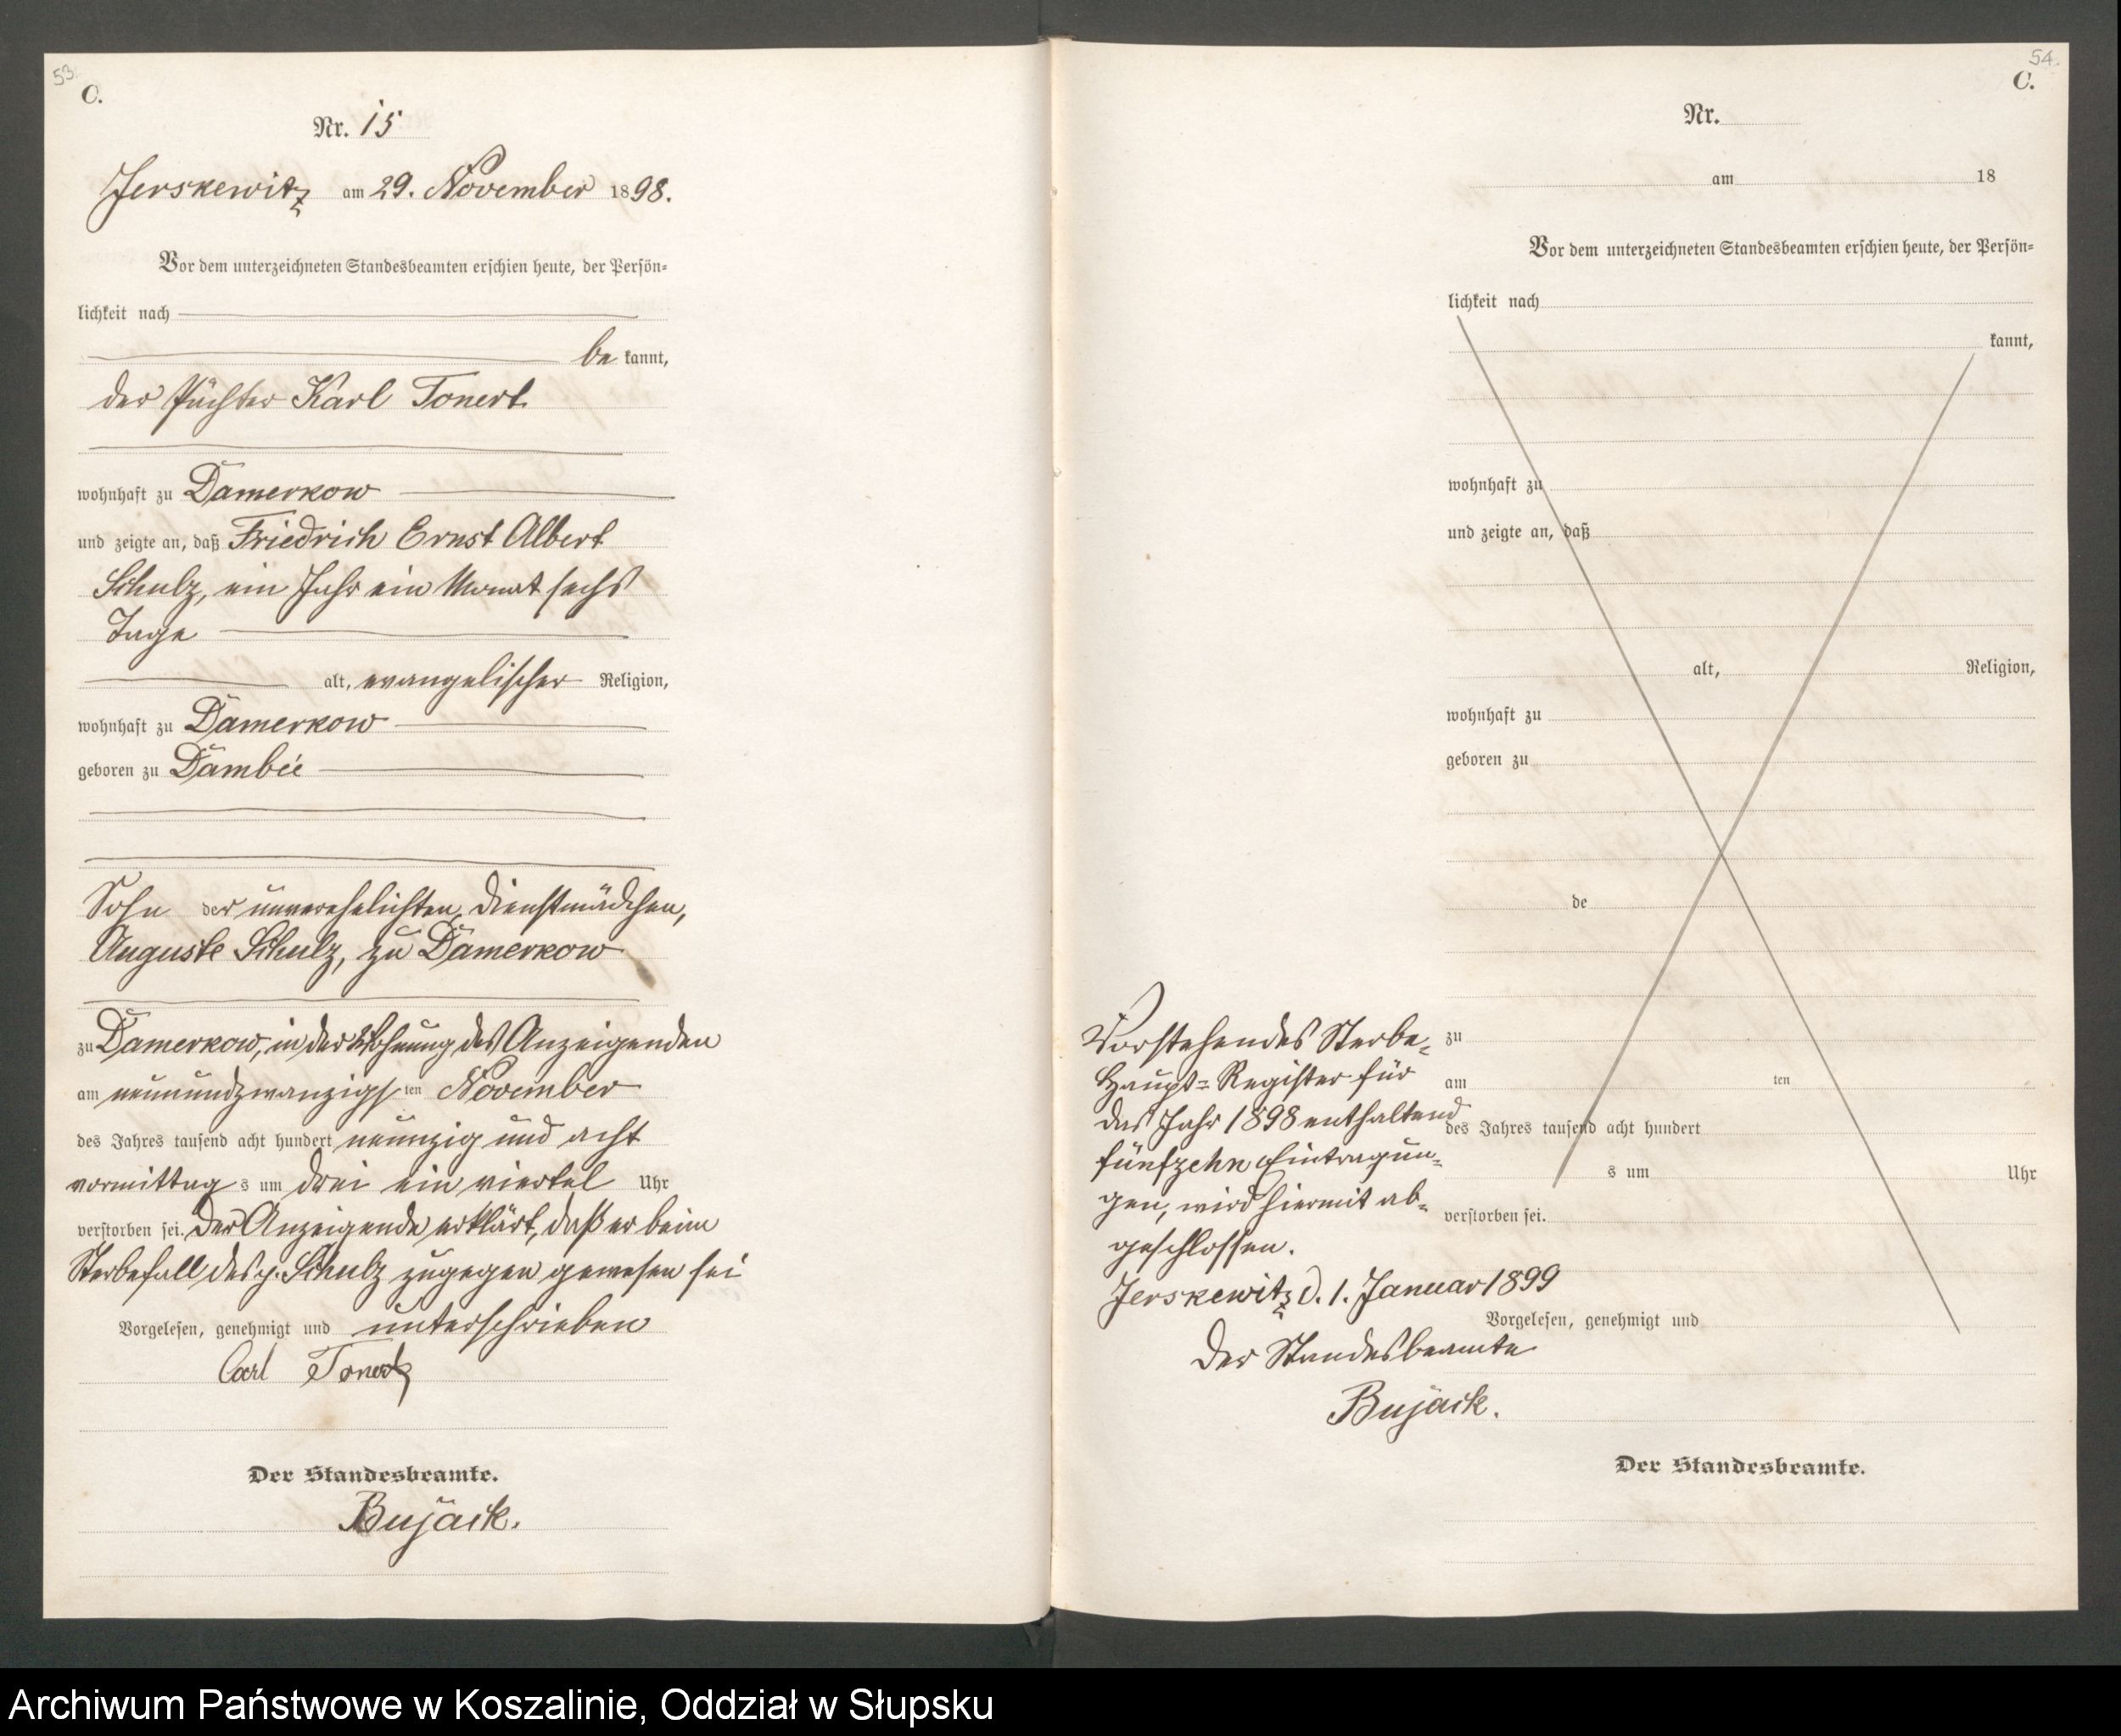 53.
C.
Nr. 15
Jerskewitz am 29. November 1898.
Vor dem unterzeichneten Standesbeamten erschien heute, der Persön-
lichkeit nach
be kannt,
der Pächter Karl Tonert
wohnhaft zu Damerkow
und zeigte an, daß Friedrich Ernst Albert
Schulz, ein Jahr ein Monat sechs
Tage
alt, evangelischer Religion,
wohnhaft zu Damerkow
geboren zu Dambée
Sohn der unverehelichten Dienstmädchen,
Auguste Schulz, zu Damerkow
zu Damerkow, in der Wohnung des Anzeigenden
am neunundzwanzigsten November
des Jahres tausend acht hundert neunzig und acht
vormittag s um drei ein viertel Uhr
verstorben sei. Der Anzeigende erklärt, daß er beim
Sterbefall des p. Schulz zugegen gewesen sei
Vorgelesen, genehmigt und unterschrieben
Carl Tonert
Der Standesbeamte.
Bujack.
54.
C.
Nr.
am 18
Vor dem unterzeichneten Standesbeamten erschien heute, der Persön-
lichkeit nach
kannt,
wohnhaft zu
und zeigte an, daß
alt, Religion,
wohnhaft zu
geboren zu
de
zu
am ten
des Jahres tausend acht hundert
s um Uhr
verstorben sei.
Vorgelesen, genehmigt und
Der Standesbeamte.
Vorstehendes Sterbe-
Haupt-Register für
das Jahr 1898 enthaltend
fünfzehn Eintragun-
gen, wird hiermit ab-
geschlossen.
Jerskewitz d. 1. Januar 1899
Der Standesbeamte
Bujack.
Archiwum Państwowe w Koszalinie, Oddział w Słupsku